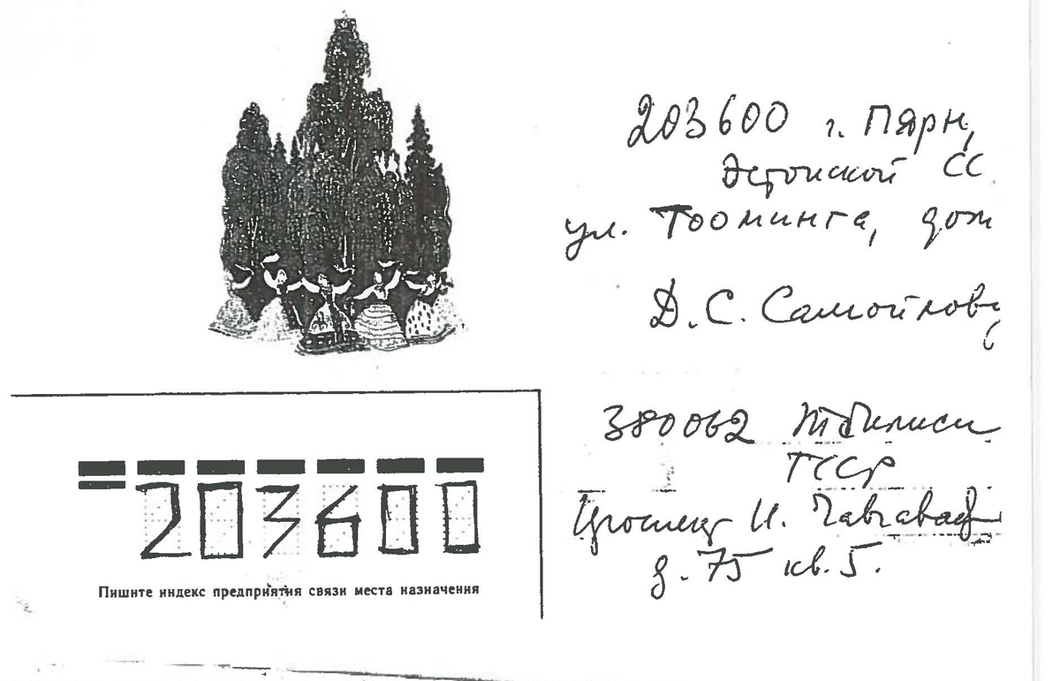 203600 г. Пярн,
Эстонской СС
ул. Тооминга, дом
Д. С. Самойлову
380062 Тбилиси
ГССР
Проспект И. Чавчавад
д. 75 кв. 5.
203600
Пишите индекс предприятия связи места назначения